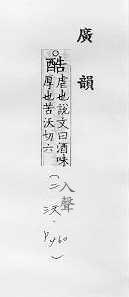 廣韻
酷
虐也說文曰酒味
厚也苦沃切六
入聲
(二沃·P460)